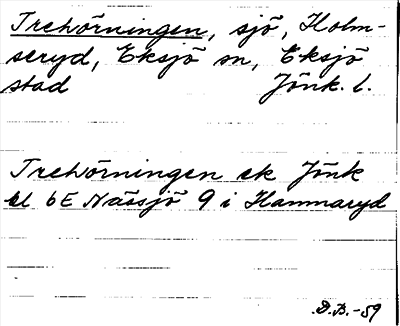 Trehörningen, sjö, Holm-
seryd, Eksjö sn, Eksjö
stad Jönk. l.
Trehörningen ek Jönk
bl 6E Nässjö 9 i Hammaryd
D.B.-59